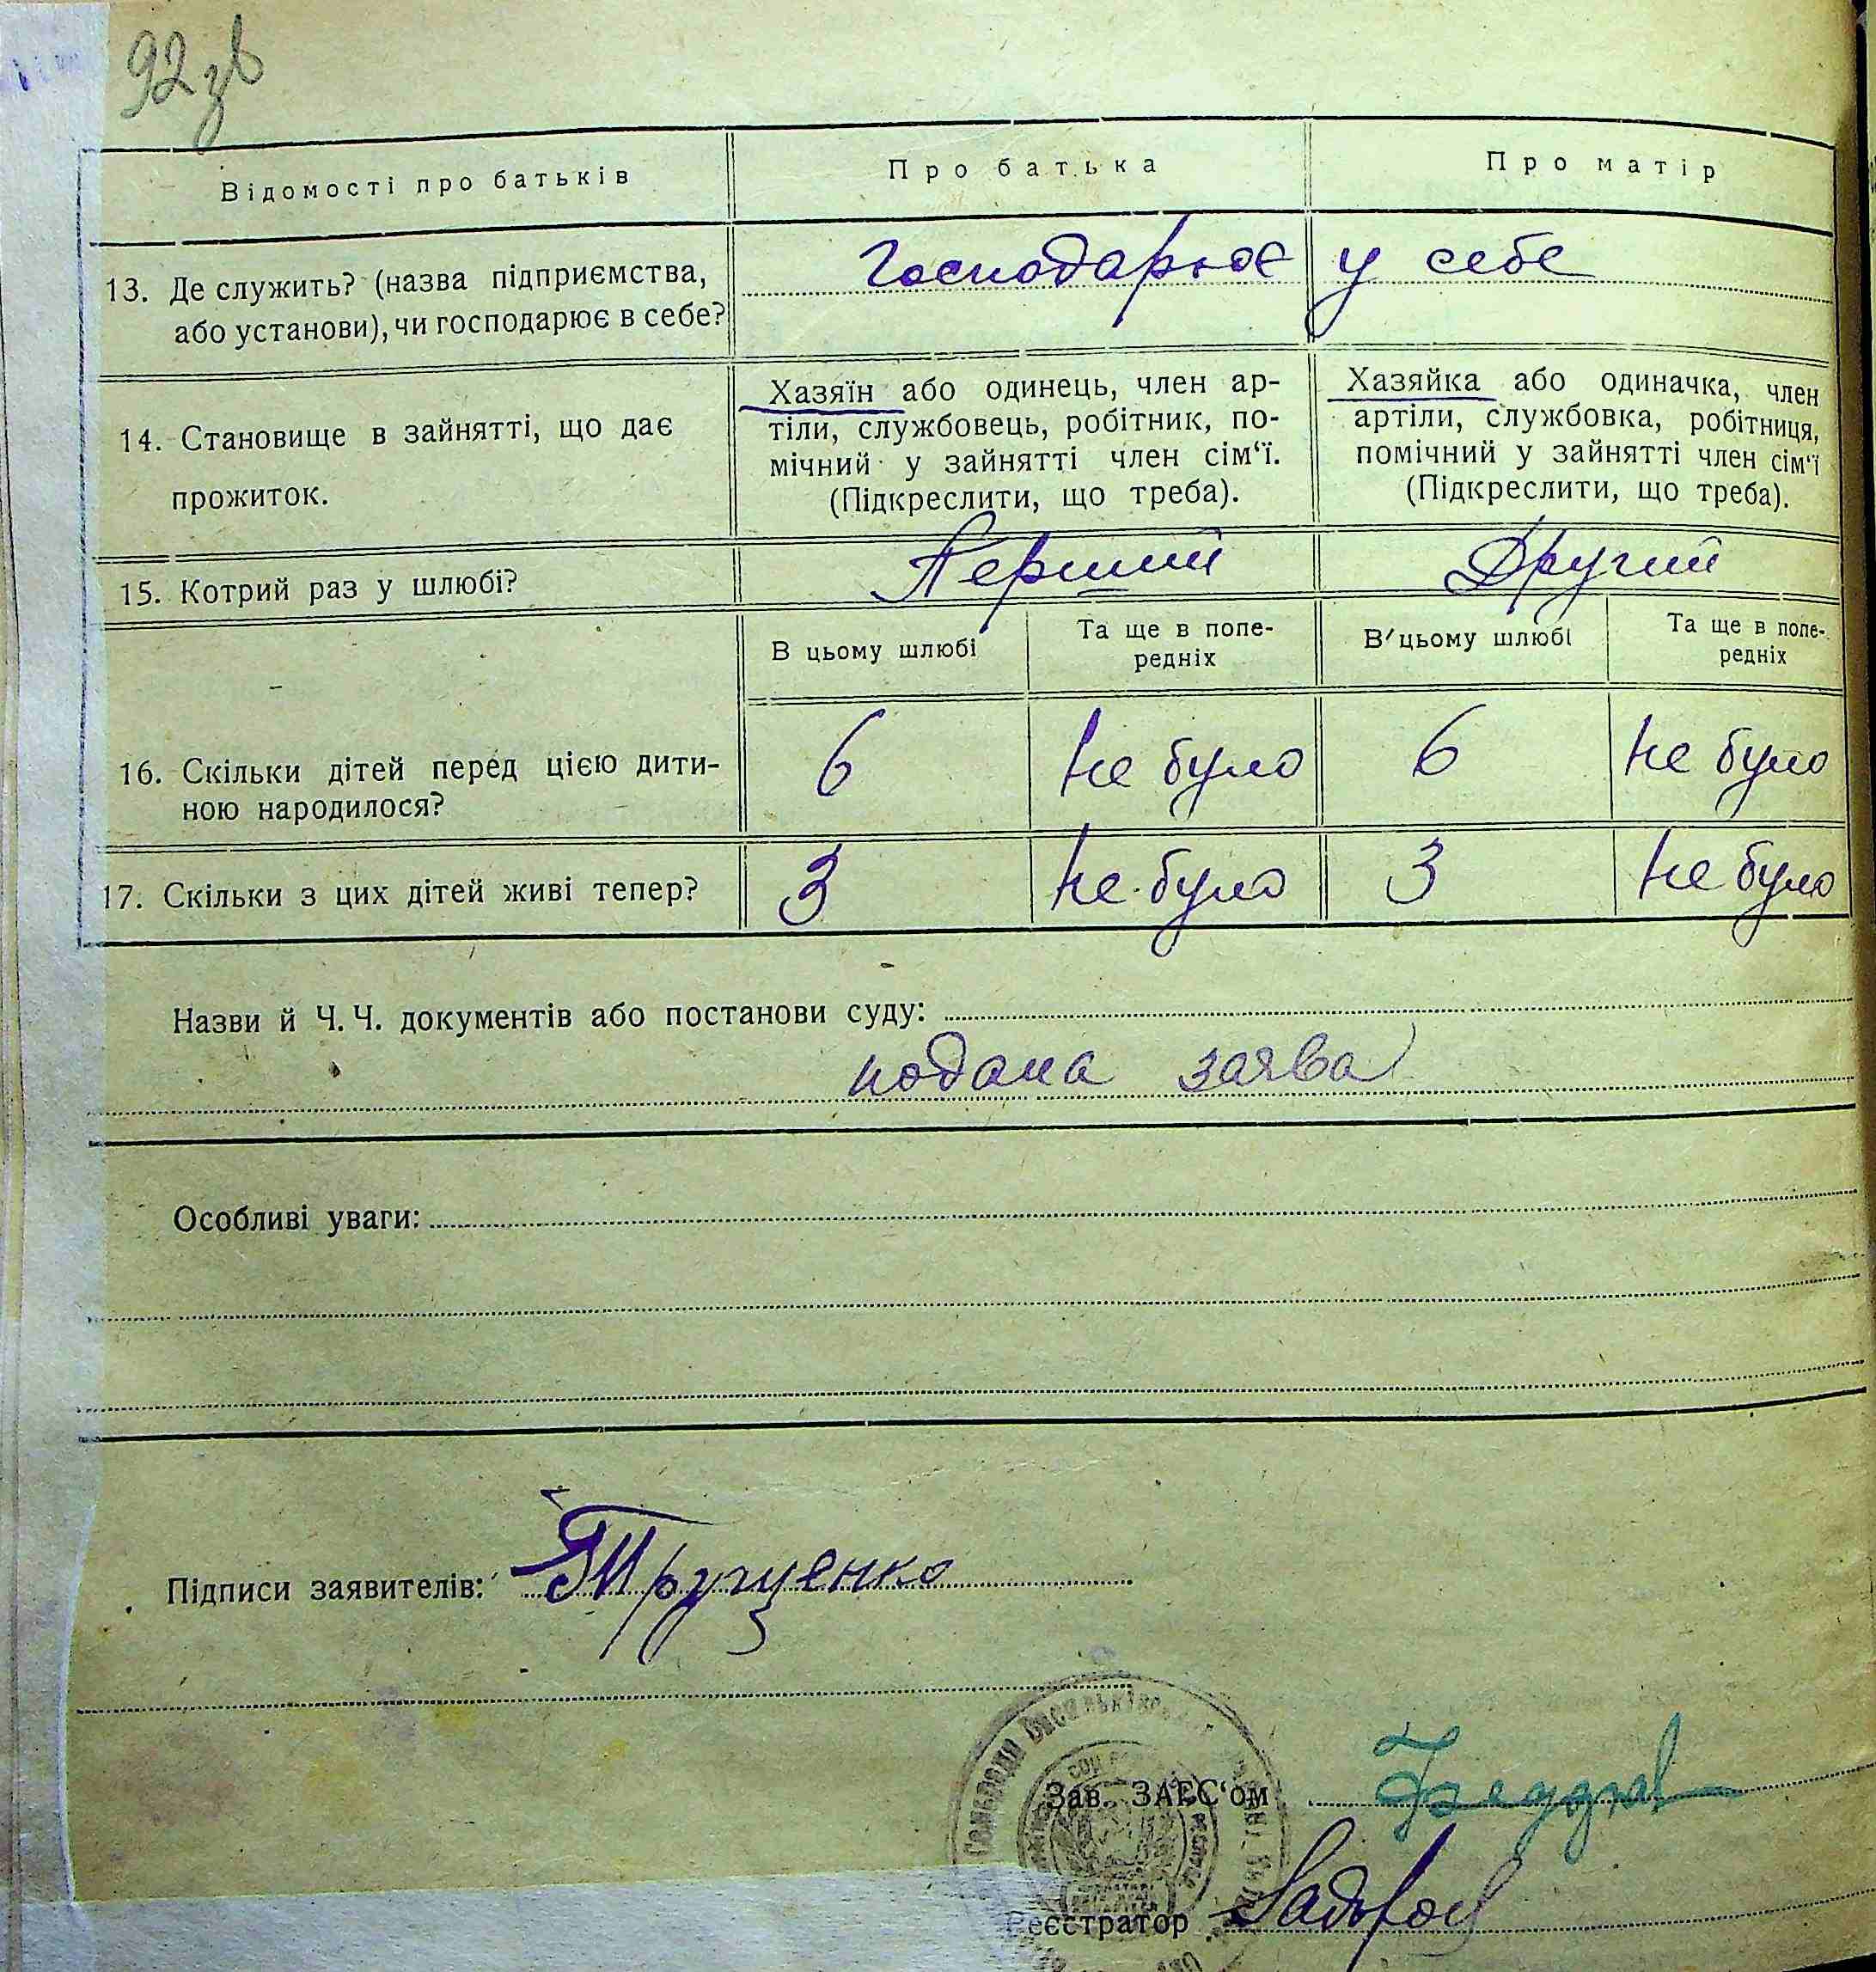 92 зв
Відомості про батьків
Про батька
Про матір
13. Де служить? (назва підприємства,
або установи), чи господарює в себе?
Господарює у себе
14. Становище в зайнятті, що дає
прожиток.
Хазяїн або одинець, член ар-
тіли, службовець, робітник, по-
мічний у зайнятті член сім‘ї.
(Підкреслити, що треба).
Хазяйка або одиначка, член
артіли, службовка, робітниця,
помічний у зайнятті член сім‘ї
(Підкреслити, що треба).
15. Котрий раз у шлюбі?
Перший
Другий
В цьому шлюбі
Та ще в попе-
редніх
В цьому шлюбі
Та ще в попе-
редніх
16. Скільки дітей перед цією дити-
ною народилося?
6
не було
6
не було
17. Скільки з цих дітей живі тепер?
3
не було
3
не було
Назви й Ч. Ч. документів або постанови суду:
подана заява
Особливі уваги:
Підписи заявителів: Трущенко
Зав. ЗАГС‘ом
Реєстратор